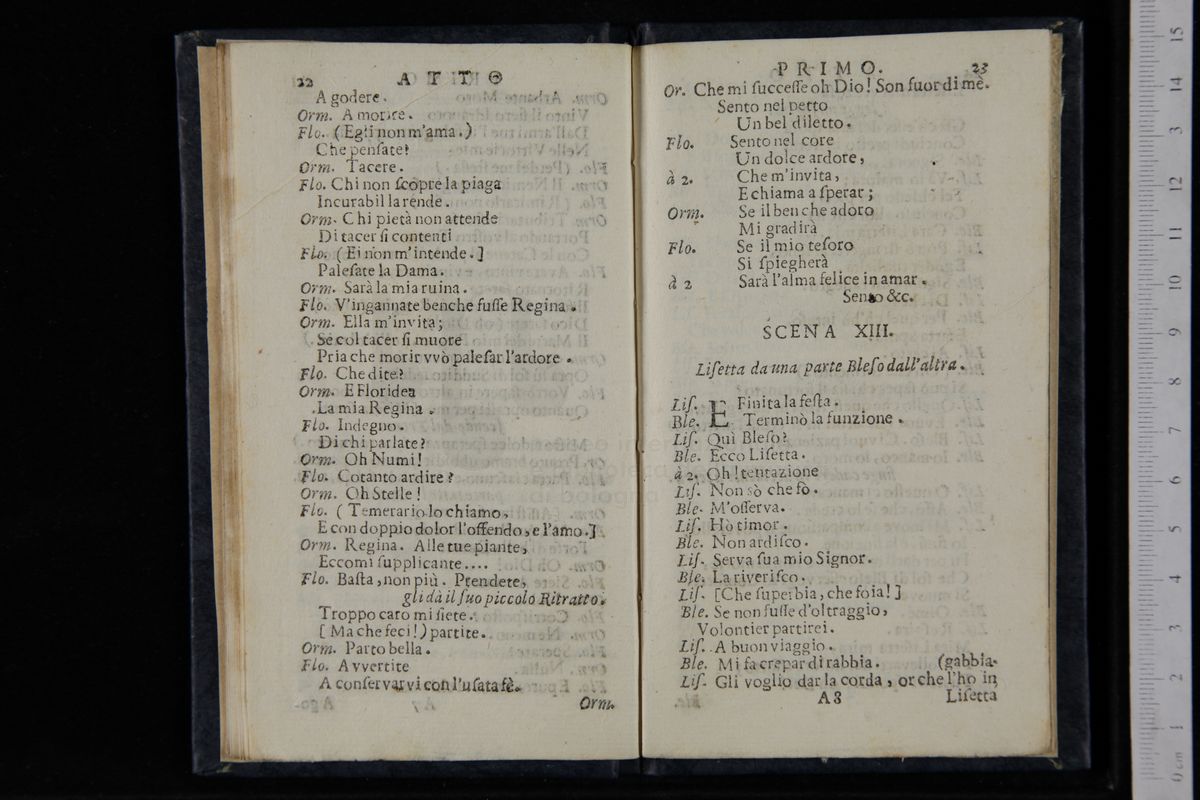 22 ATTO
A godere.
Orm. A morire.
Flo. (Egli non m'ama.)
Che pensate?
Orm. Tacere.
Flo. Chi non ſcopre la piaga
Incurabil la rende.
Orm. Chi pietà non attende
Di tacer ſi contenti
Flo. (Ei non m'intende.]
Paleſate la Dama.
Orm. Sarà la mia ruina.
Flo. V'ingannate benche fuſſe Regina.
Orm. Ella m'invita;
Se col tacer ſi muore
Pria che morir vvò paleſar l'ardore.
Flo. Che dite?
Orm. E Floridea
La mia Regina.
Flo. Indegno.
Di chi parlate?
Orm. Oh Numi!
Flo. Cotanto ardire?
Orm. Oh Stelle!
Flo. (Temerario lo chiamo,
E con doppio dolor l'offendo, e l'amo.]
Orm. Regina. Alle tue piante,
Eccomi ſupplicante....
Flo. Baſta, non più. Prendete,
gli dà il ſuo piccolo Ritratto.
Troppo caro mi ſiete.
[Ma che feci!) partite.
Orm. Parto bella.
Flo. Avvertite
A conſervarvi con l'uſata fè.
Orm.
PRIMO. 23
Or. Che mi ſucceſſe oh Dio! Son fuor di mè.
Sento nel petto
Un bel diletto.
Flo. Sento nel core
Un dolce ardore,
à 2. Che m'invita,
E chiama a ſperar;
Orm. Se il ben che adoro
Mi gradirà
Flo. Se il mio teſoro
Si ſpiegherà
à 2 Sarà l'alma felice in amar.
Sento &c.
SCENA XIII.
Liſetta da una parte Bleſo dall'altra.
Liſ. E Finita la feſta.
Ble. Terminò la funzione.
Liſ. Quì Bleſo?
Ble. Ecco Liſetta.
à 2. Oh! tentazione
Liſ. Non sò che fò.
Ble. M'oſſerva.
Liſ. Hò timor.
Ble. Non ardiſco.
Liſ. Serva ſua mio Signor.
Ble. La riveriſco.
Liſ. [Che ſuperbia, che foia!]
Ble. Se non fuſſe d'oltraggio,
Volontier partirei.
Liſ. A buon viaggio.
Ble. Mi fa crepar di rabbia. (gabbia.
Liſ. Gli voglio dar la corda, or che l'ho in
A8 Liſetta